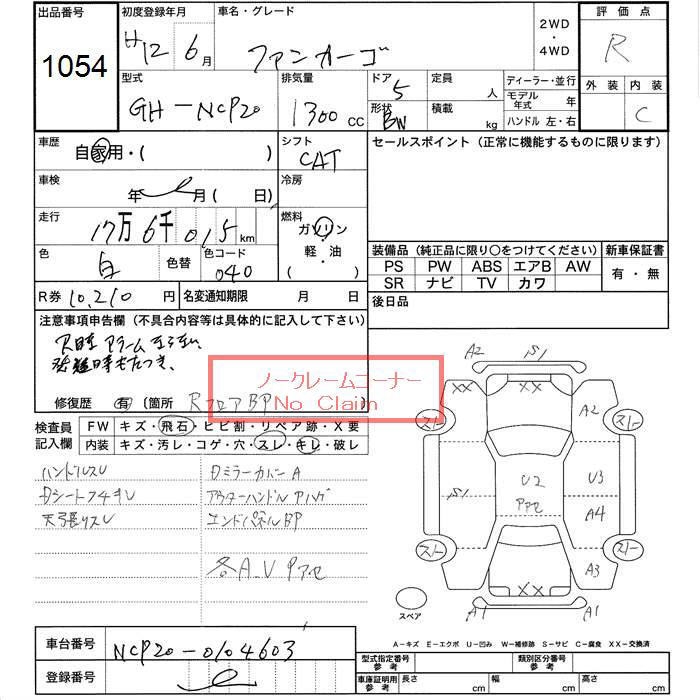 出品番号
1054
初度登録年月
H12 6月
車名・グレード
ファンカーゴ
2WD
・
4WD
評価点
R
外装 内装
C
型式
GH-NCP20
排気量
1300 CC
ドア
5
形状
BW
定員
人
積載
kg
ディーラー・並行
モデル年式 年
ハンドル 左・右
車歴
自家用・( )
シフト
CAT
セールスポイント(正常に機能するものに限ります)
車検
年 月( 日)
冷房
走行
17万6千015km
燃料
ガソリン
軽・油
( )
色
白
色替
色コード
040
装備品(純正品に限り○をつけてください)
PS PW ABS エアB AW
SR ナビ TV カワ
新車保証書
有・無
R券 10,210 円
名変通知期限 月 日
後日品
注意事項申告欄(不具合内容等は具体的に記入して下さい)
修復歴 有 〔箇所 RフロアBP
ノークレームコーナー
No Claim
検査員記入欄
FW キズ・飛石・ヒビ割・リペア跡・X要
内装 キズ・汚レ・コゲ・穴・スレ・キレ・破レ
ハンドルスU
Dシートフチキレ
天張りスU
Dミラーカバー A
アウターハンドル
エンドパネルBP
各A_V Pアセ
A2
S1
XX XX
A2
スト スト
S1
U2
Pアセ
U3
A4
スト スト
A3
XX
A1 A1
スペア
A-キズ E-エクボ U-凹み W-補修跡 S-サビ C-腐食 XX-交換済
車台番号
NCP20-0104603
登録番号
型式指定番号 参考
類別区分番号 参考
車庫証明用 参考
長さ cm
幅 cm
高さ cm